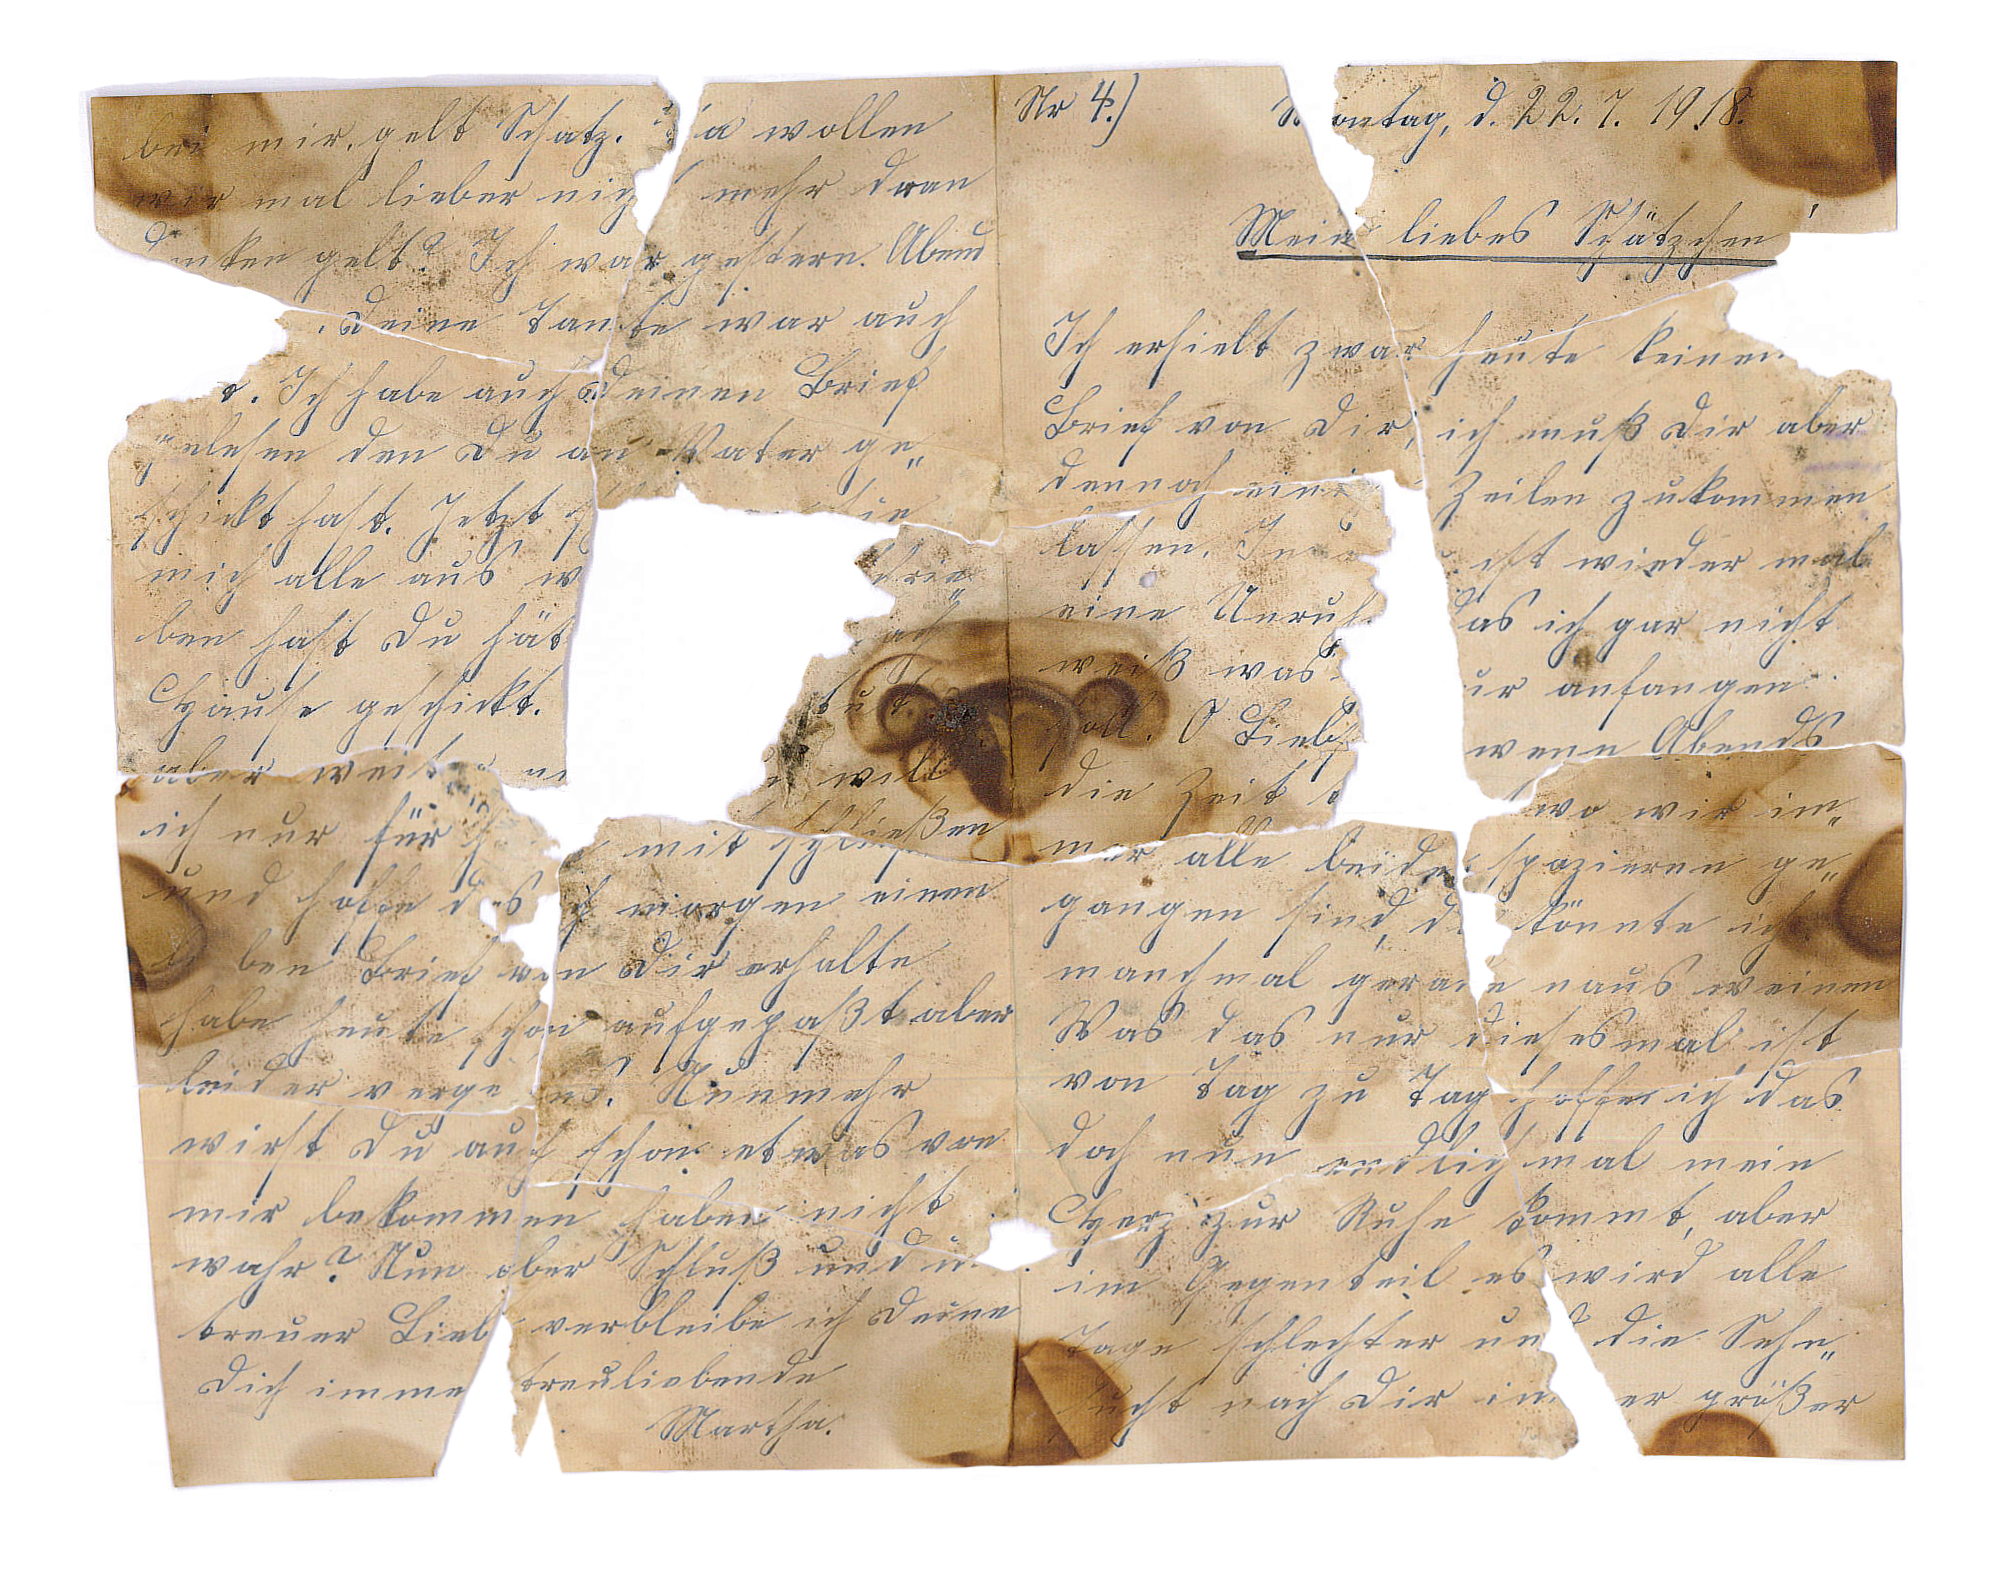 Nr 4.) Montag, d. 22. 7. 1918.
Mein liebes Schätzchen!
Ich erhielt zwar heute keinen
Brief von Dir, ich muß Dir aber
dennoch eini Zeilen zukommen
lassen. In ist wieder mal
eine Unruh das ich gar nicht
weiß was ur anfangen
soll. O Liebst wenn Abends
die Zeit wo wir im„
mer alle beide spazieren ge„
gangen sind, d könnte ich
manchmal gerade naus weinen
Was das nur diesesmal ist
von Tag zu Tag hoffe ich das
doch nun endlich mal mein
Herz zur Ruhe kommt, aber
im Gegenteil es wird alle
Tage schlechter und die Sehn„
sucht nach Dir immer größer
bei mir, gelt Schatz. a wollen
wir mal lieber nich mehr dran
denken gelt? Ich war gestern Abend
Deine Tante war auch
t. Ich habe auch Deinen Brief
gelesen den Du an Vater ge„
schickt hast. Jetzt sie
mich alle aus w chrie„
ben hast Du hät ach
Hause geschickt. tut.
aber weiter ni will
ich nur für h mit schließen
und hoffe das ich morgen einen
lieben Brief von Dir erhalte
habe heute schon aufgepaßt aber
leider vergebens. Nunmehr
wirst Du auch schon etwas von
mir bekommen haben nicht
wahr? Nun aber Schluß und in
treuer Lieb verbleibe ich Deine
Dich imme treuliebende
Martha.